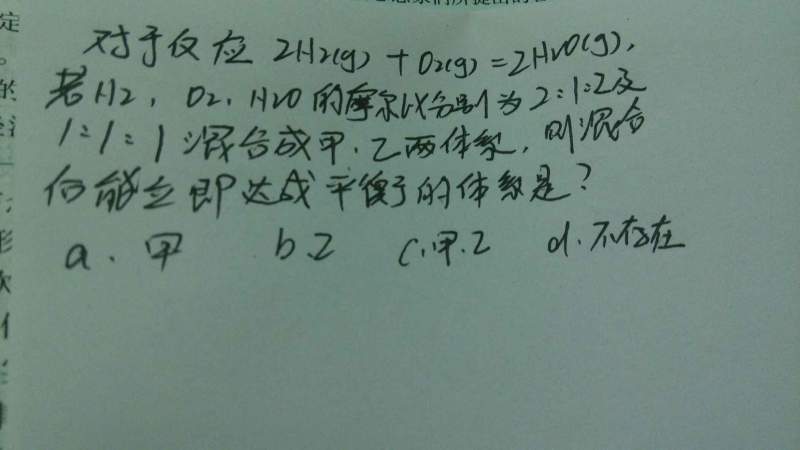 对于反应 2H2(g) + O2(g) = 2H2O(g),
若H2, O2, H2O的摩尔比分别为2:1:2及
1:1:1混合成甲、乙两体系, 则混合
后能立即达成平衡的体系是?
a. 甲 b. 乙 c. 甲.乙 d. 不存在